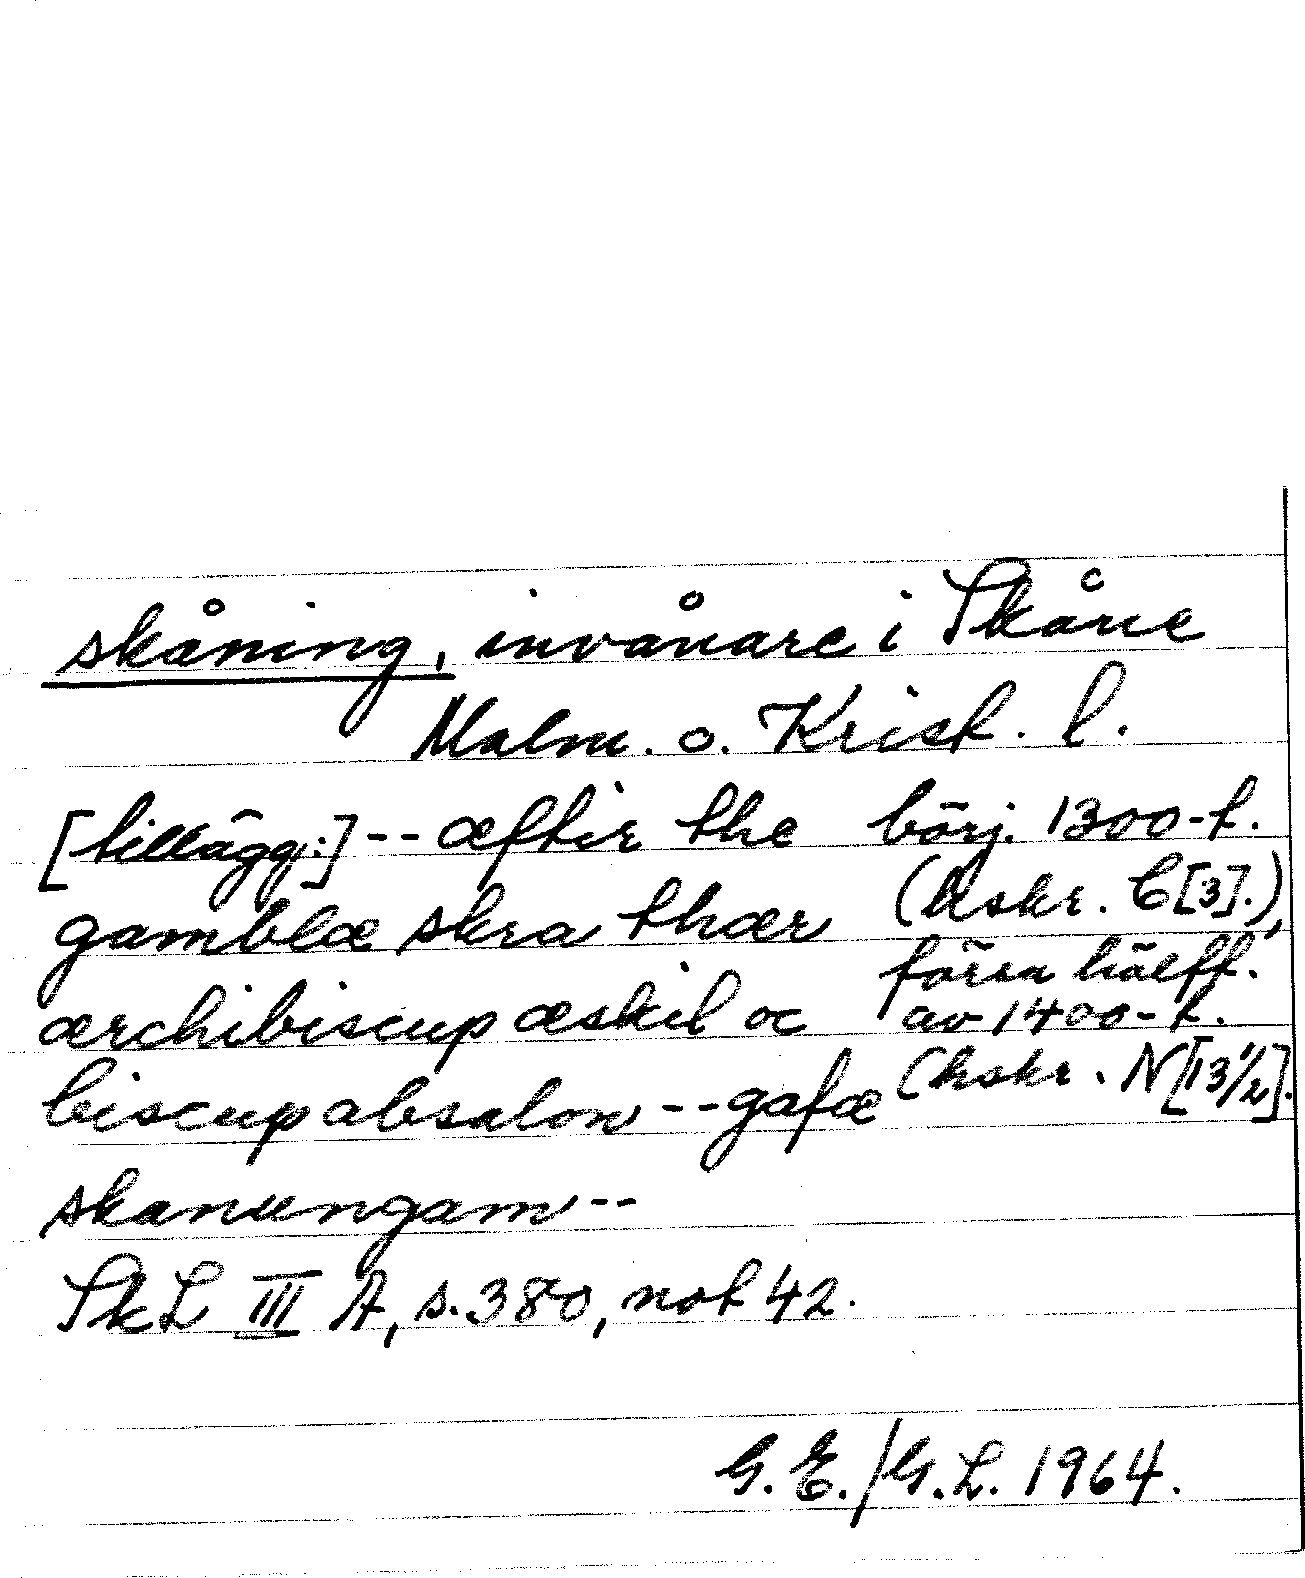 skåning, invånare i Skåne
Malm. o. Krist. l.
[tillägg:] -- æftir the
gamblæ skra thær
ærchibiscup æskil oc
biscup absalon -- gafæ
skanungam --
börj. 1300-t.
(hskr. C[3].),
förra hälft.
av 1400-t.
(hskr. N[13 1/2].
SkL III A, s. 380, not 42.
G.E./G.L. 1964.